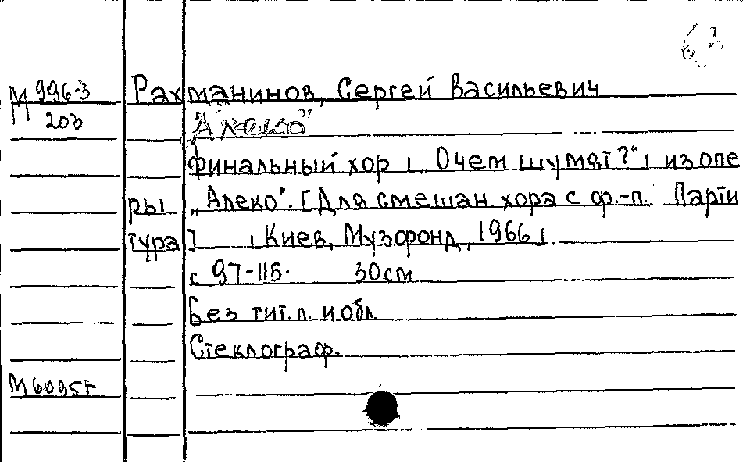 63
М 996-3 Рахманинов, Сергей Васильевич
203 "Алеко"
Финальный хор ["О чем шумят?"] из опе
ры "Алеко". [Для смешан хора с ф.-п. Парти
тура] [Киев, Музфонд, 1966].
с 97-115. 30см
Без тит.л. и обл.
Стеклограф.
М6095г